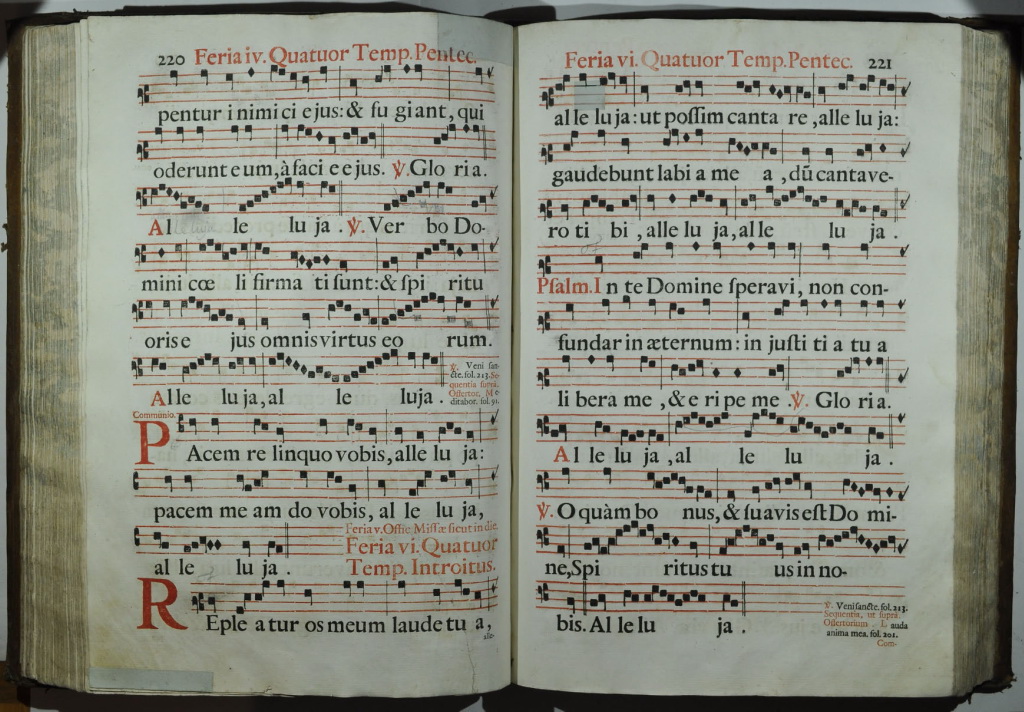 220 Feria iv. Quatuor Temp. Pentec.
pentur i nimi ci ejus: & fu giant, qui
oderunt eum, à faci e ejus. ℣. Glo ria.
Al le lu ja. ℣. Ver bo Do-
mini cœ li firma ti sunt: & spi ritu
oris e jus omnis virtus eo rum.
Alle lu ja, al le luja.
℣. Veni san-
cte. fol. 213. Se-
quentia supra.
Offertor. Me-
ditabor. fol. 91.
Communio.
PAcem re linquo vobis, alle lu ja:
pacem me am do vobis, al le lu ja,
al le lu ja.
Feria v. Offic Missæ sicut in die.
Feria vi. Quatuor
Temp. Introitus.
REple a tur os meum laude tu a,
alle-
Feria vi. Quatuor Temp. Pentec. 221
al le lu ja: ut possim canta re, alle lu ja:
gaudebunt labi a me a, dū cantave-
ro ti bi, alle lu ja, al le lu ja.
Psalm. I n te Domine speravi, non con-
fundar in æternum: in justi ti a tu a
li bera me, & e ri pe me. ℣. Glo ri a.
Al le lu ja, al le lu ja.
℣. O quàm bo nus, & suavis est Do mi-
ne, Spi ritus tu us in no-
bis. Al le lu ja.
℣. Veni sancte. fol. 213.
Sequentia, ut supra.
Offertorium. Lauda
anima mea. fol. 201.
Com-